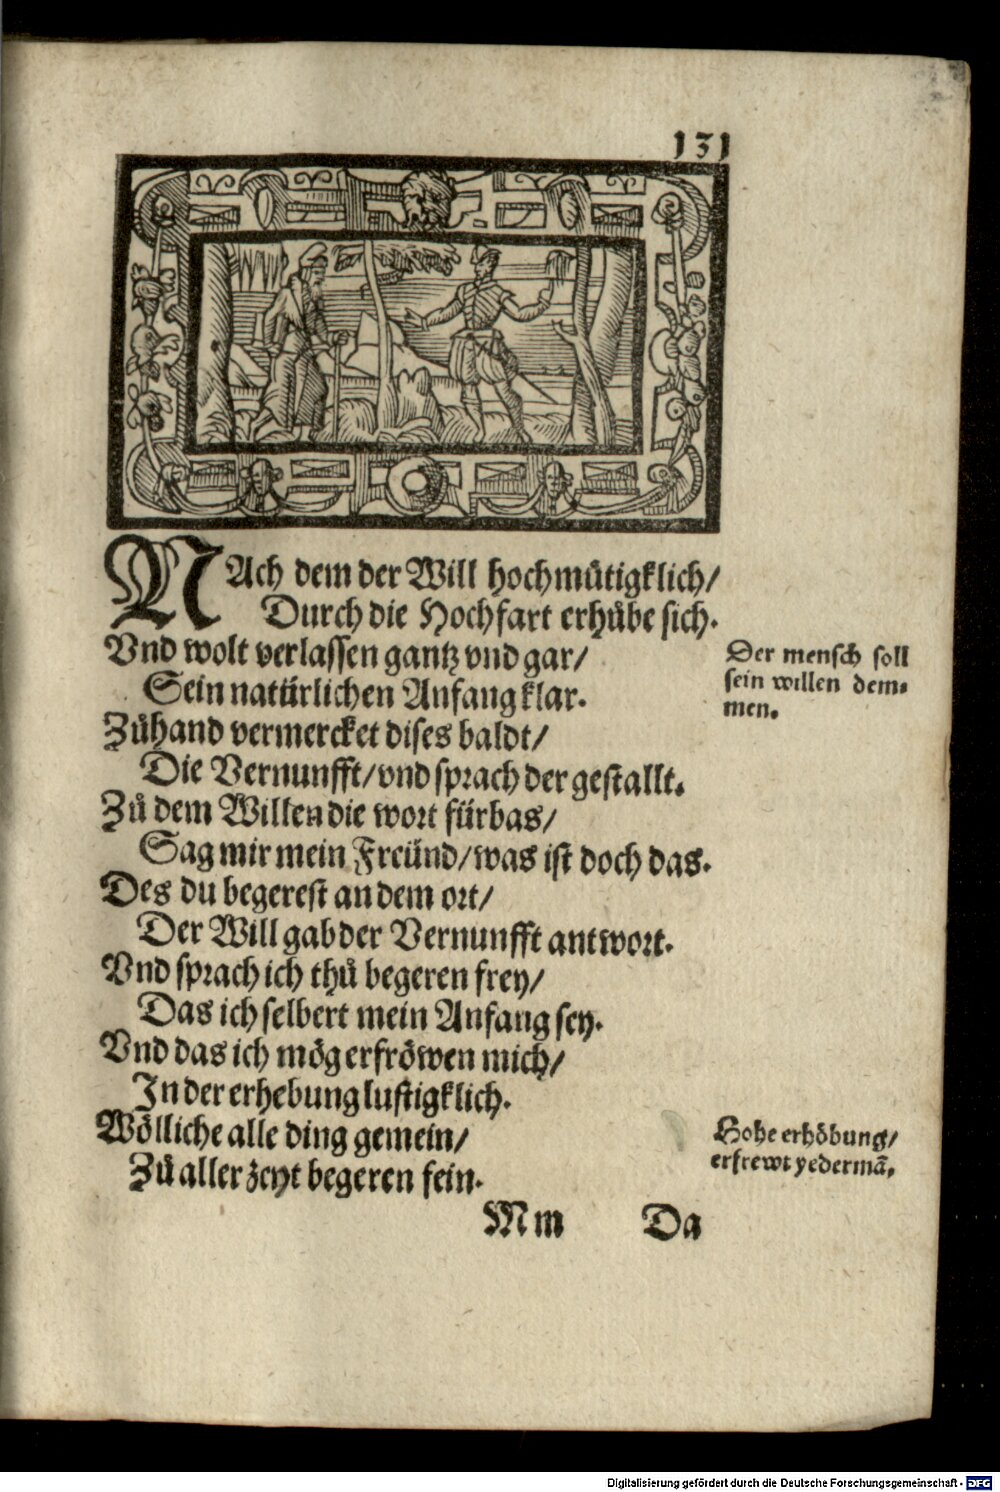 131
NAch dem der Will hochmůtigklich/
Durch die Hochfart erhůbe sich.
Vnd wolt verlassen gantz vnd gar/
Sein natürlichen Anfang klar.
Der mensch soll
sein willen dem⸗
men.
Zůhand vermercket dises baldt/
Die Vernunfft/ vnd sprach der gestallt.
Zů dem Willen die wort fürbas/
Sag mir mein Freünd/ was ist doch das.
Des du begerest an dem ort/
Der Will gab der Vernunfft antwort.
Vnd sprach ich thů begeren frey/
Das ich selbert mein Anfang sey.
Vnd das ich mög erfröwen mich/
In der erhebung lustigklich.
Wölliche alle ding gemein/
Zů aller zeyt begeren fein.
Hohe erhöbung/
erfrewt yedermā.
Mm Da
Digitalisierung gefördert durch die Deutsche Forschungsgemeinschaft - DFG